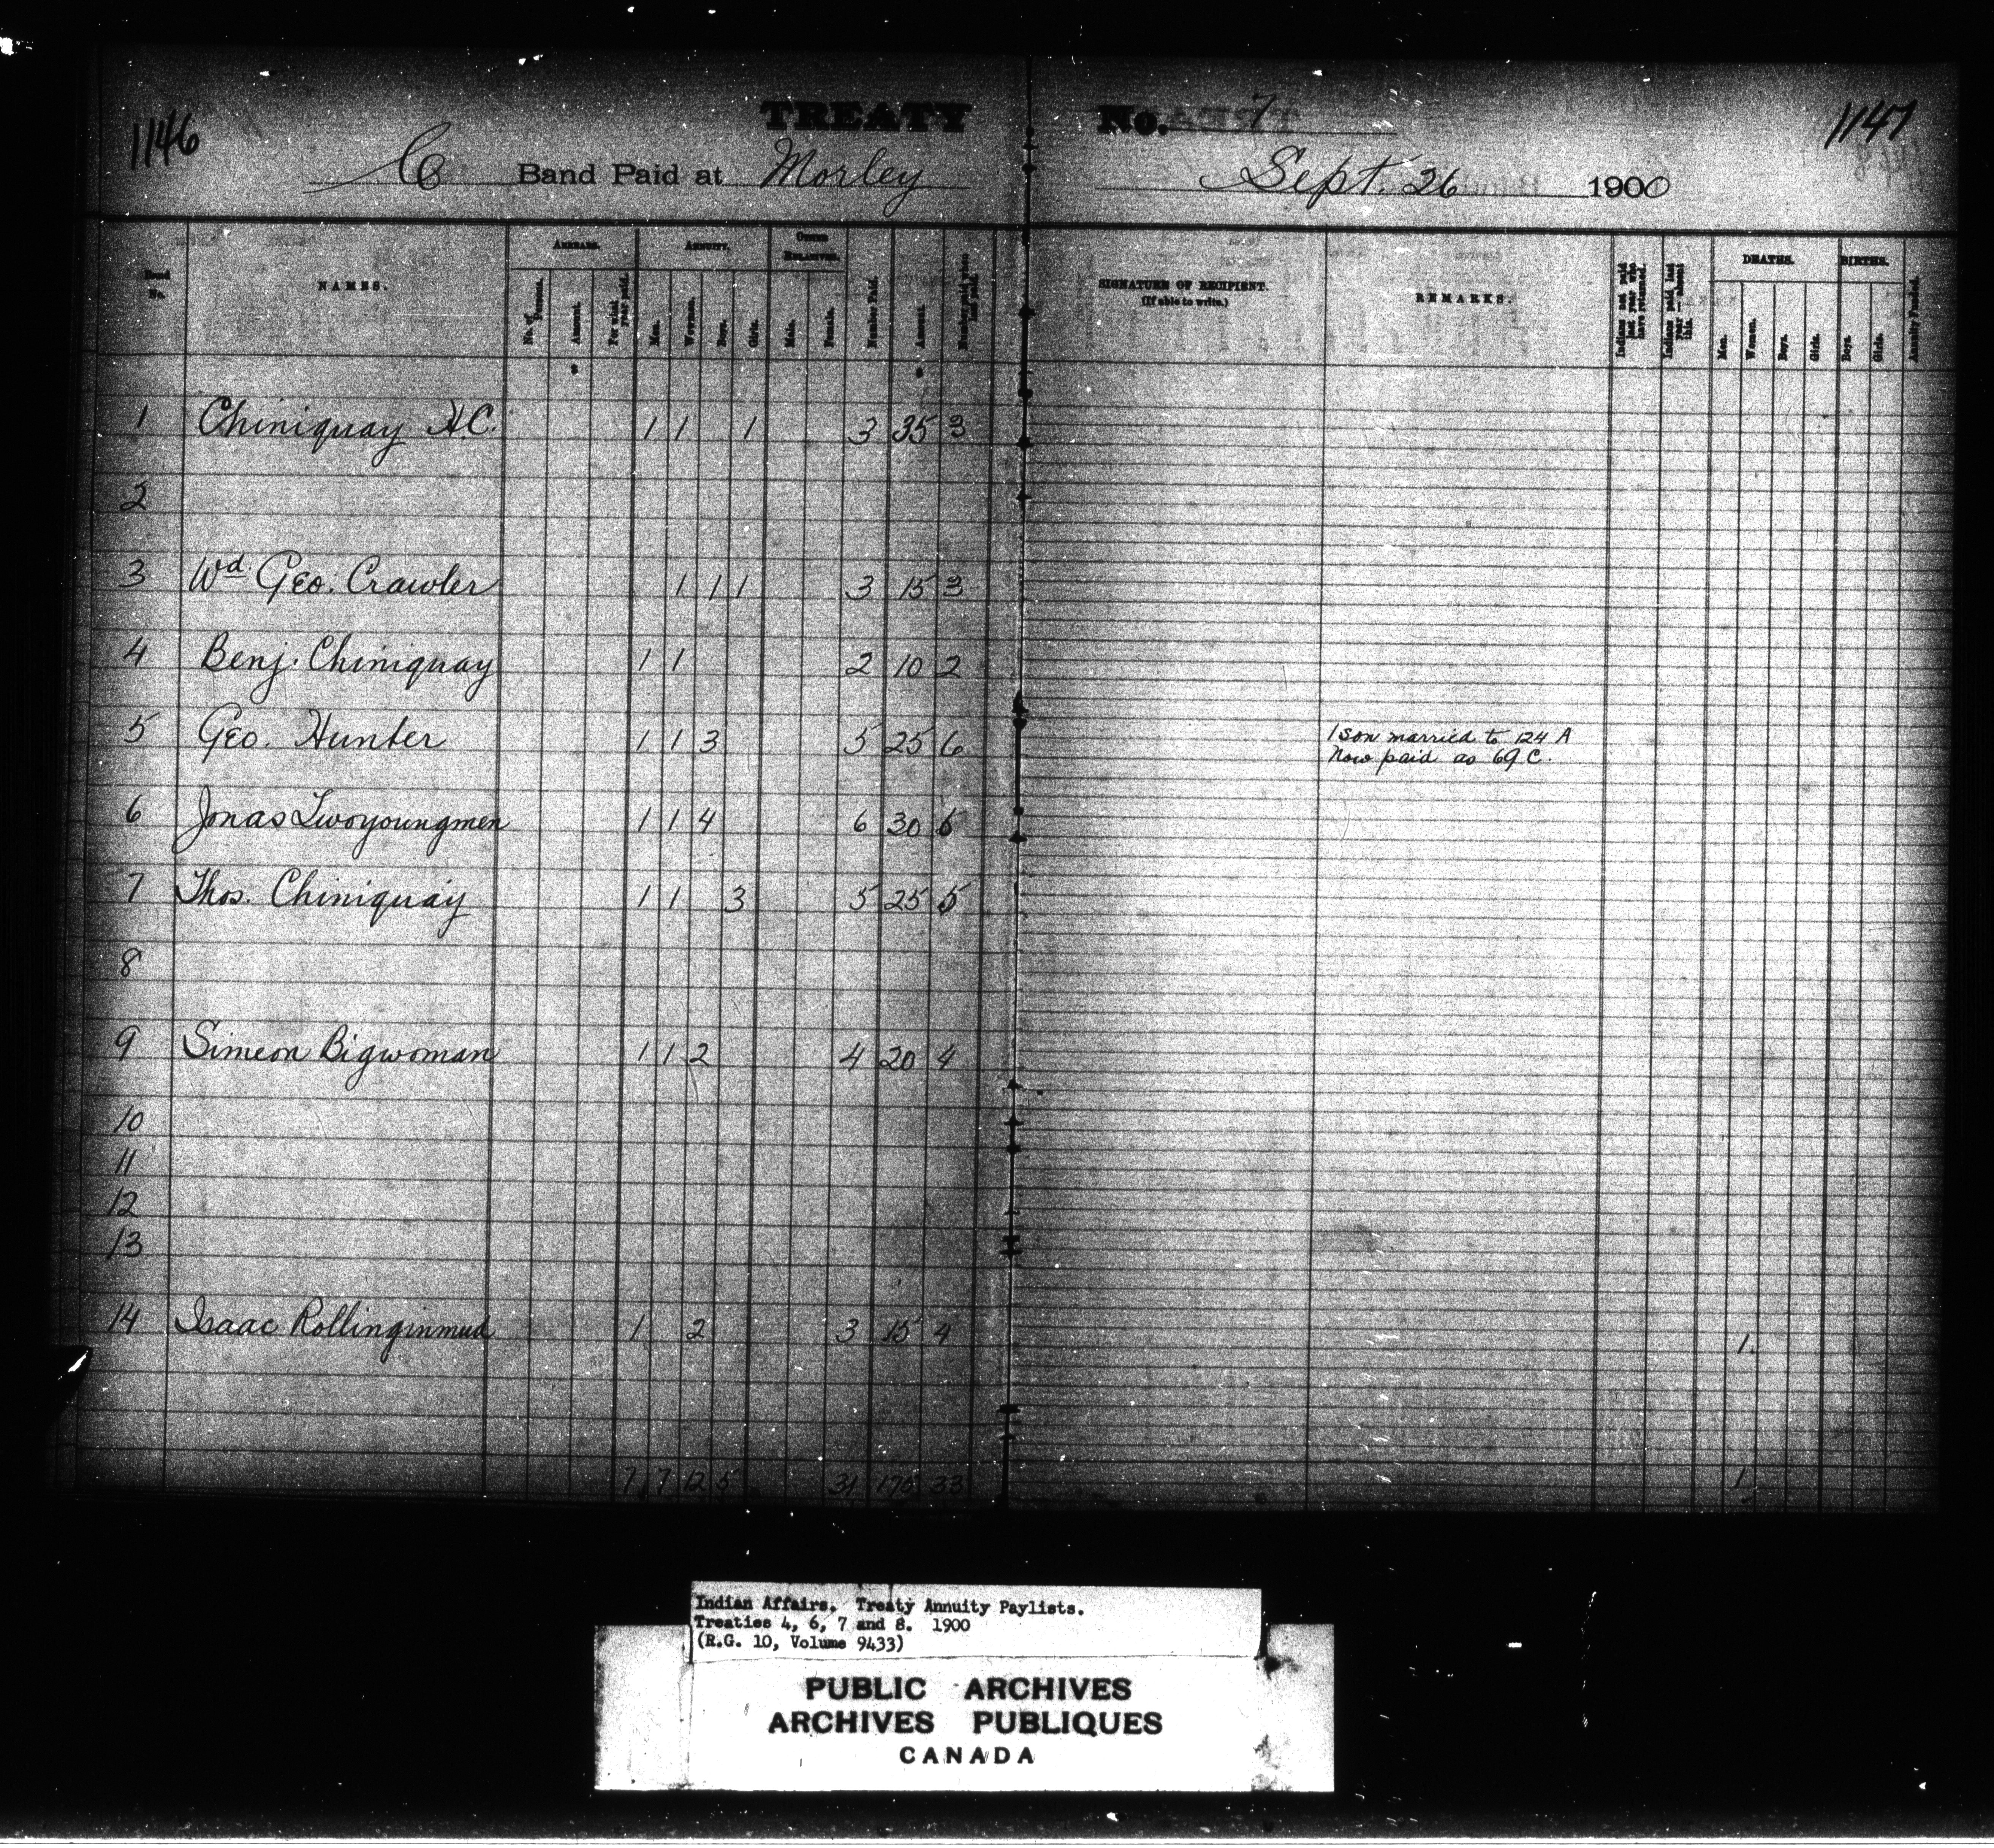 1146
TREATY No. 7
1147
C Band Paid at Morley Sept. 26 1900
Band No.
NAMES.
ARREARS.
No. of Persons.
Amount.
For what year paid.
ANNUITY.
Men.
Women.
Boys.
Girls.
OTHER RELATIVES.
Male.
Female.
Number Paid.
Amount.
Number paid when last paid.
SIGNATURE OF RECIPIENT.
(If able to write.)
REMARKS.
Indians not paid last year who have returned.
Indians paid last year – absent this.
DEATHS.
Men.
Women.
Boys.
Girls.
BIRTHS.
Boys.
Girls.
Annuity Funded.
1 Chiniquay H.C. 1 1 1 3 35 3
2
3 Wd Geo. Crawler 1 1 1 3 15 3
4 Benj. Chiniquay 1 1 2 10 2
5 Geo. Hunter 1 1 3 5 25 6 1 son married to 124 A
Now paid as 69 C.
6 Jonas Twoyoungmen 1 1 4 6 30 6
7 Thos. Chiniquay 1 1 3 5 25 5
8
9 Simeon Bigwoman 1 1 2 4 20 4
10
11
12
13
14 Isaac Rollinginmud 1 2 3 15 4 1
7 7 12 5 31 175 33 1
Indian Affairs. Treaty Annuity Paylists.
Treaties 4, 6, 7 and 8. 1900
(R.G. 10, Volume 9433)
PUBLIC ARCHIVES
ARCHIVES PUBLIQUES
CANADA